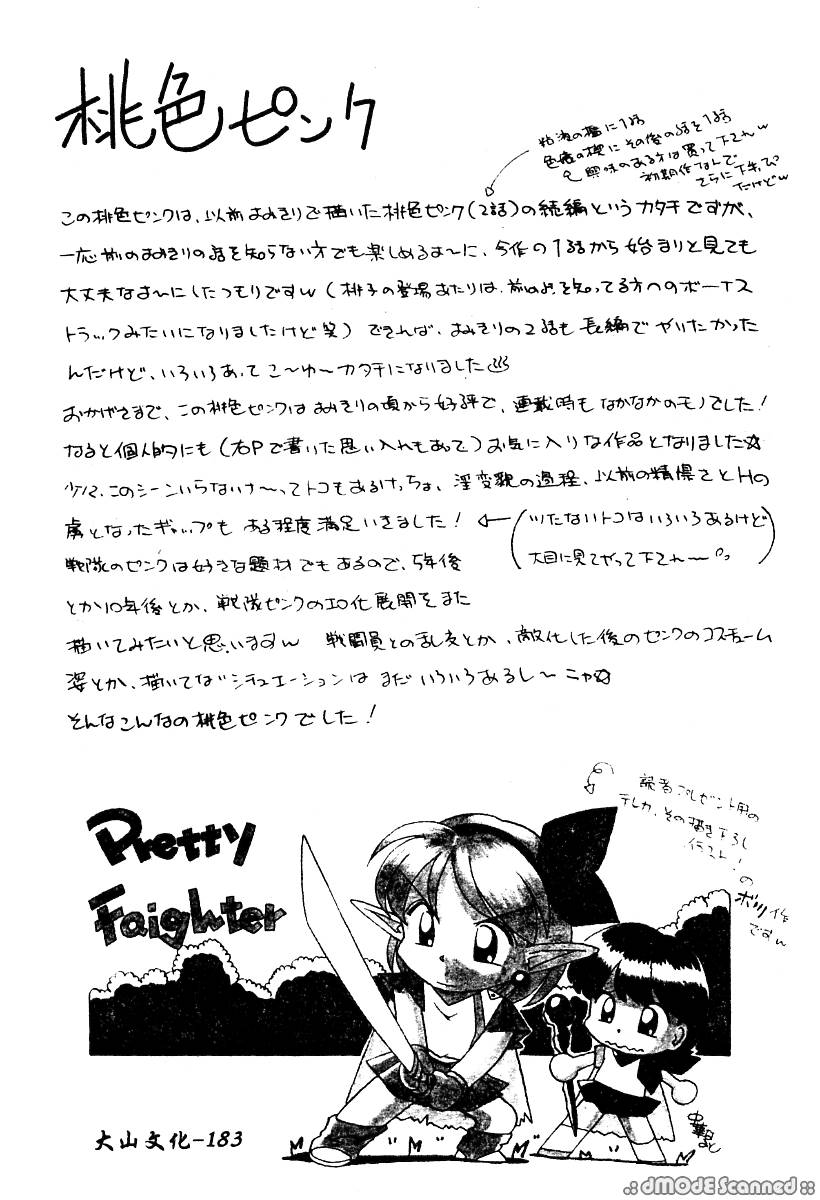 桃色ピンク
粘液の檻に1話
色癌の楔にその後の話を1話
興味のある方は買って下されw
初期作なんで
さらに下手っぴ
だけどw
この桃色ピンクは、以前よみきりで描いた桃色ピンク(2話)の続編というカタチですが、
一応前のよみきりの話を知らない方でも楽しめるよ〜に、今作の1話から始まりと見ても
大丈夫なよ〜にしたつもりですw(桃子の登場あたりは、前の話を知ってる方へのボーナス
トラックみたいになりましたけど笑)できれば、よみきりの2話も長編でやりたかった
んだけど、いろいろあってこ〜ゆ〜カタチになりました
おかげさまで、この桃色ピンクはよみきりの頃から好評で、連載時もなかなかのモノでした!
なると個人的にも(右Pで書いた思い入れもあって)お気に入りな作品となりました☆
少々、このシーンいらないナ〜ってトコもあるけっちょ、淫変貌の過程、以前の精悍さとHの
虜となったギャップもある程度満足いきました!
(ツたないトコはいろいろあるけど
大目に見てやって下され〜
戦隊のピンクは好きな題材でもあるので、5年後
とか10年後とか、戦隊ピンクのエロ化展開をまた
描いてみたいと思いますw 戦闘員との乱交とか、敵化した後のピンクのコスチューム
姿とか、描いてないシチュエーションはまだいろいろあるし〜ニャ☆
そんなこんなの桃色ピンクでした!
読者プレゼント用の
テレカ、その描き下ろし
イラスト!
のボツ作
ですw
Pretty
Faighter
大山文化-183
dMODE Scanned